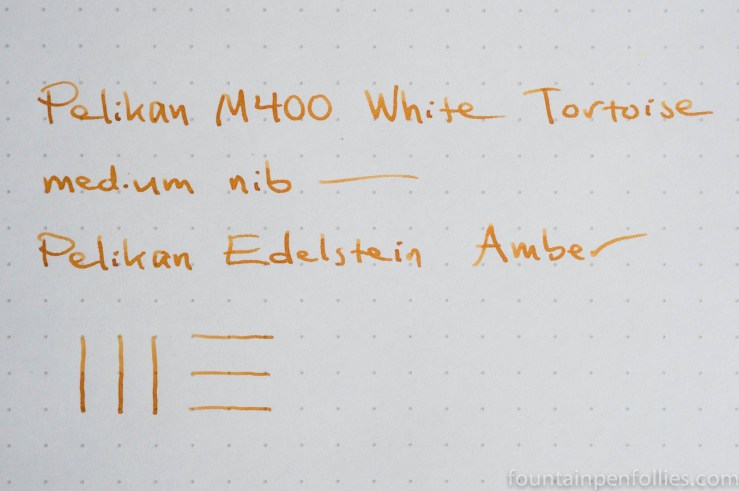 Pelikan M400 White Tortoise
medium nib
Pelikan Edelstein Amber
fountainpenfollies.com